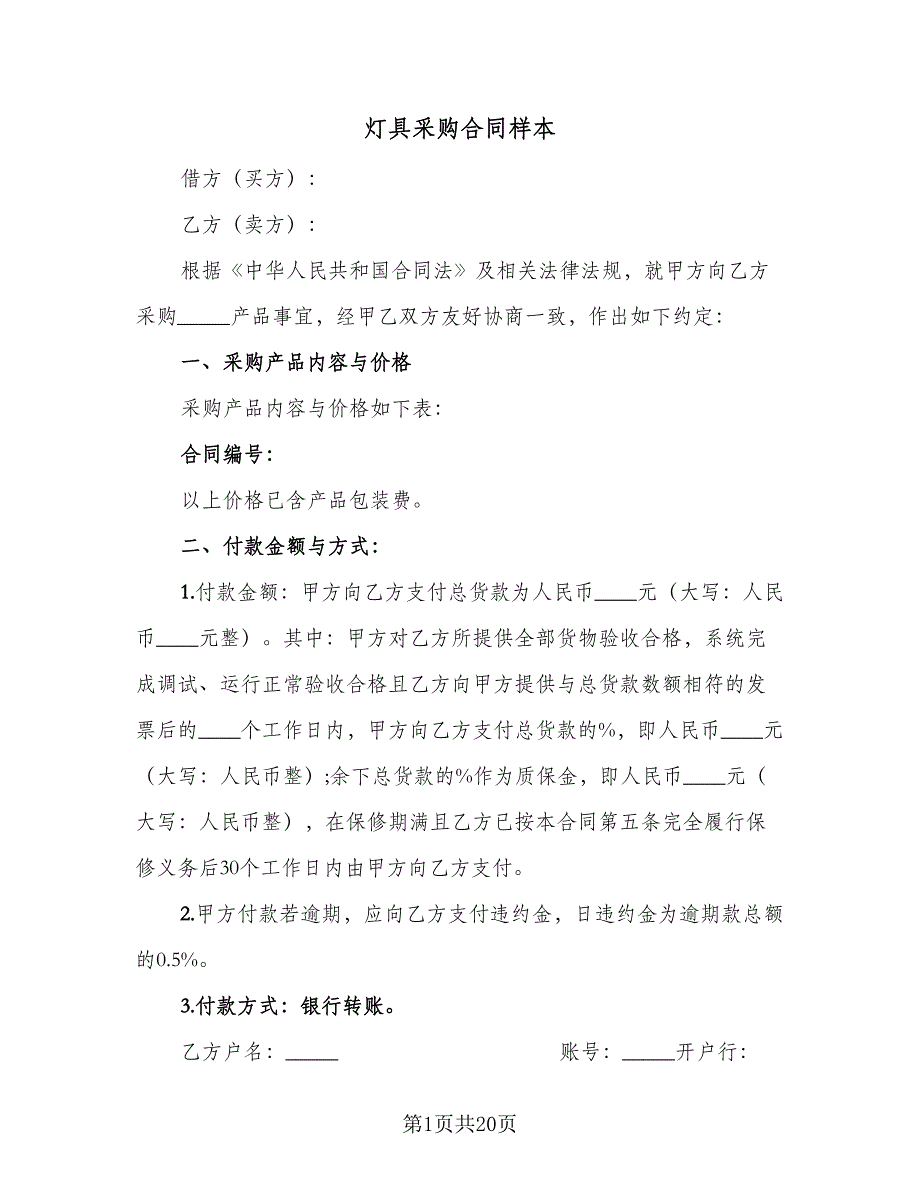 灯具采购合同样本
借方（买方）：
乙方（卖方）：
根据《中华人民共和国合同法》及相关法律法规，就甲方向乙方
采购_____产品事宜，经甲乙双方友好协商一致，作出如下约定：
一、采购产品内容与价格
采购产品内容与价格如下表：
合同编号：
以上价格已含产品包装费。
二、付款金额与方式：
1.付款金额：甲方向乙方支付总货款为人民币____元（大写：人民
币____元整）。其中：甲方对乙方所提供全部货物验收合格，系统完
成调试、运行正常验收合格且乙方向甲方提供与总货款数额相符的发
票后的____个工作日内，甲方向乙方支付总货款的%，即人民币____元
（大写：人民币整）;余下总货款的%作为质保金，即人民币____元（
大写：人民币整），在保修期满且乙方已按本合同第五条完全履行保
修义务后30个工作日内由甲方向乙方支付。
2.甲方付款若逾期，应向乙方支付违约金，日违约金为逾期款总额
的0.5%。
3.付款方式：银行转账。
乙方户名：_____ 账号：_____开户行：
第1页共20页